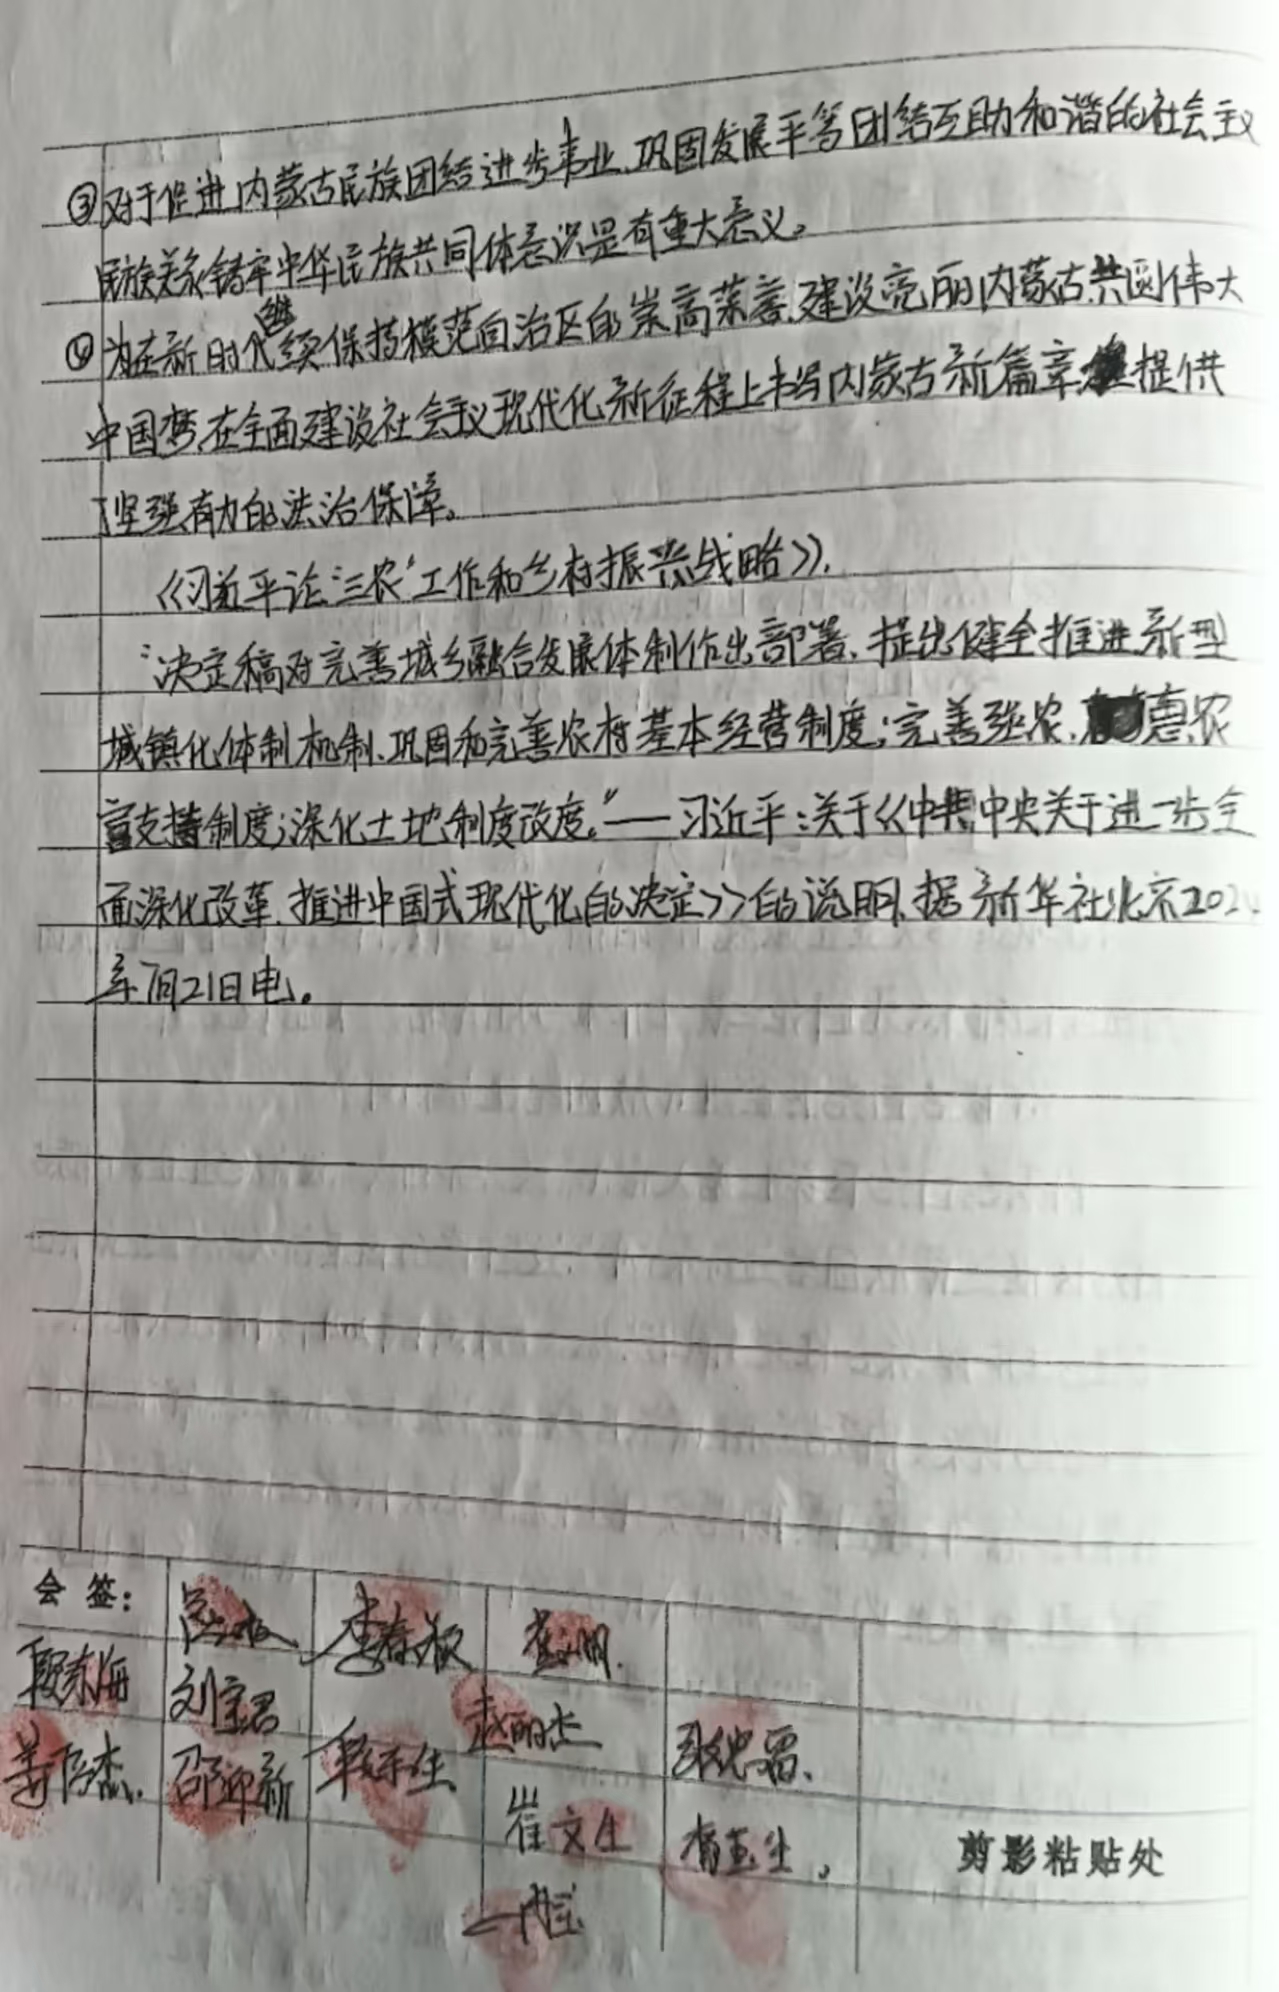 ③对于促进内蒙古民族团结进步事业、巩固发展平等团结互助和谐的社会主义
民族关系铸牢中华民族共同体意识是有重大意义。
④为在新时代继续保持模范自治区的崇高荣誉、建设亮丽内蒙古共圆伟大
中国梦、在全面建设社会主义现代化新征程上书写内蒙古新篇章提供
了坚强有力的法治保障。
《习近平论"三农"工作和乡村振兴战略》.
"决定稿对完善城乡融合发展体制作出部署、提出健全推进新型
城镇化体制机制、巩固和完善农村基本经营制度;完善强农、惠农
富支持制度;深化土地制度改度。"——习近平:关于《中共中央关于进一步全
面深化改革、推进中国式现代化的决定》的说明、据新华社北京202
年7月21日电。
会签:
李春波
段东海
刘宝君
赵丽杰
邵迎新
崔文生
剪影粘贴处